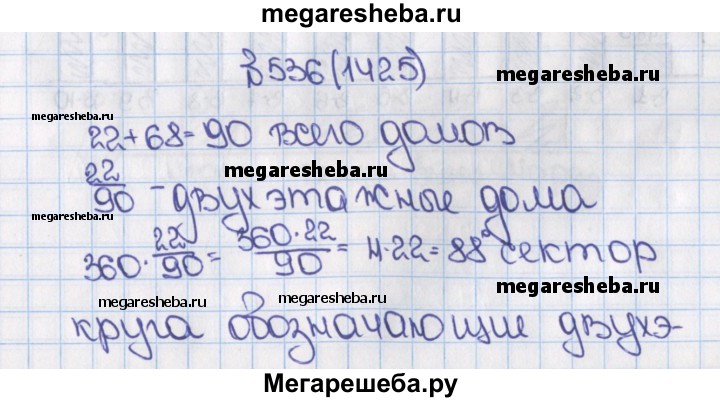 megaresheba.ru
В 536 (1425)
megaresheba.ru
megaresheba.ru
22+68=90 всего домов
megaresheba.ru
22/90 - двухэтажные дома
megaresheba.ru
360·22/90=360·22/90=4·22=88° сектор
megaresheba.ru
megaresheba.ru
megaresheba.ru
круга обозначающие двухэ-
Мегарешеба.ру